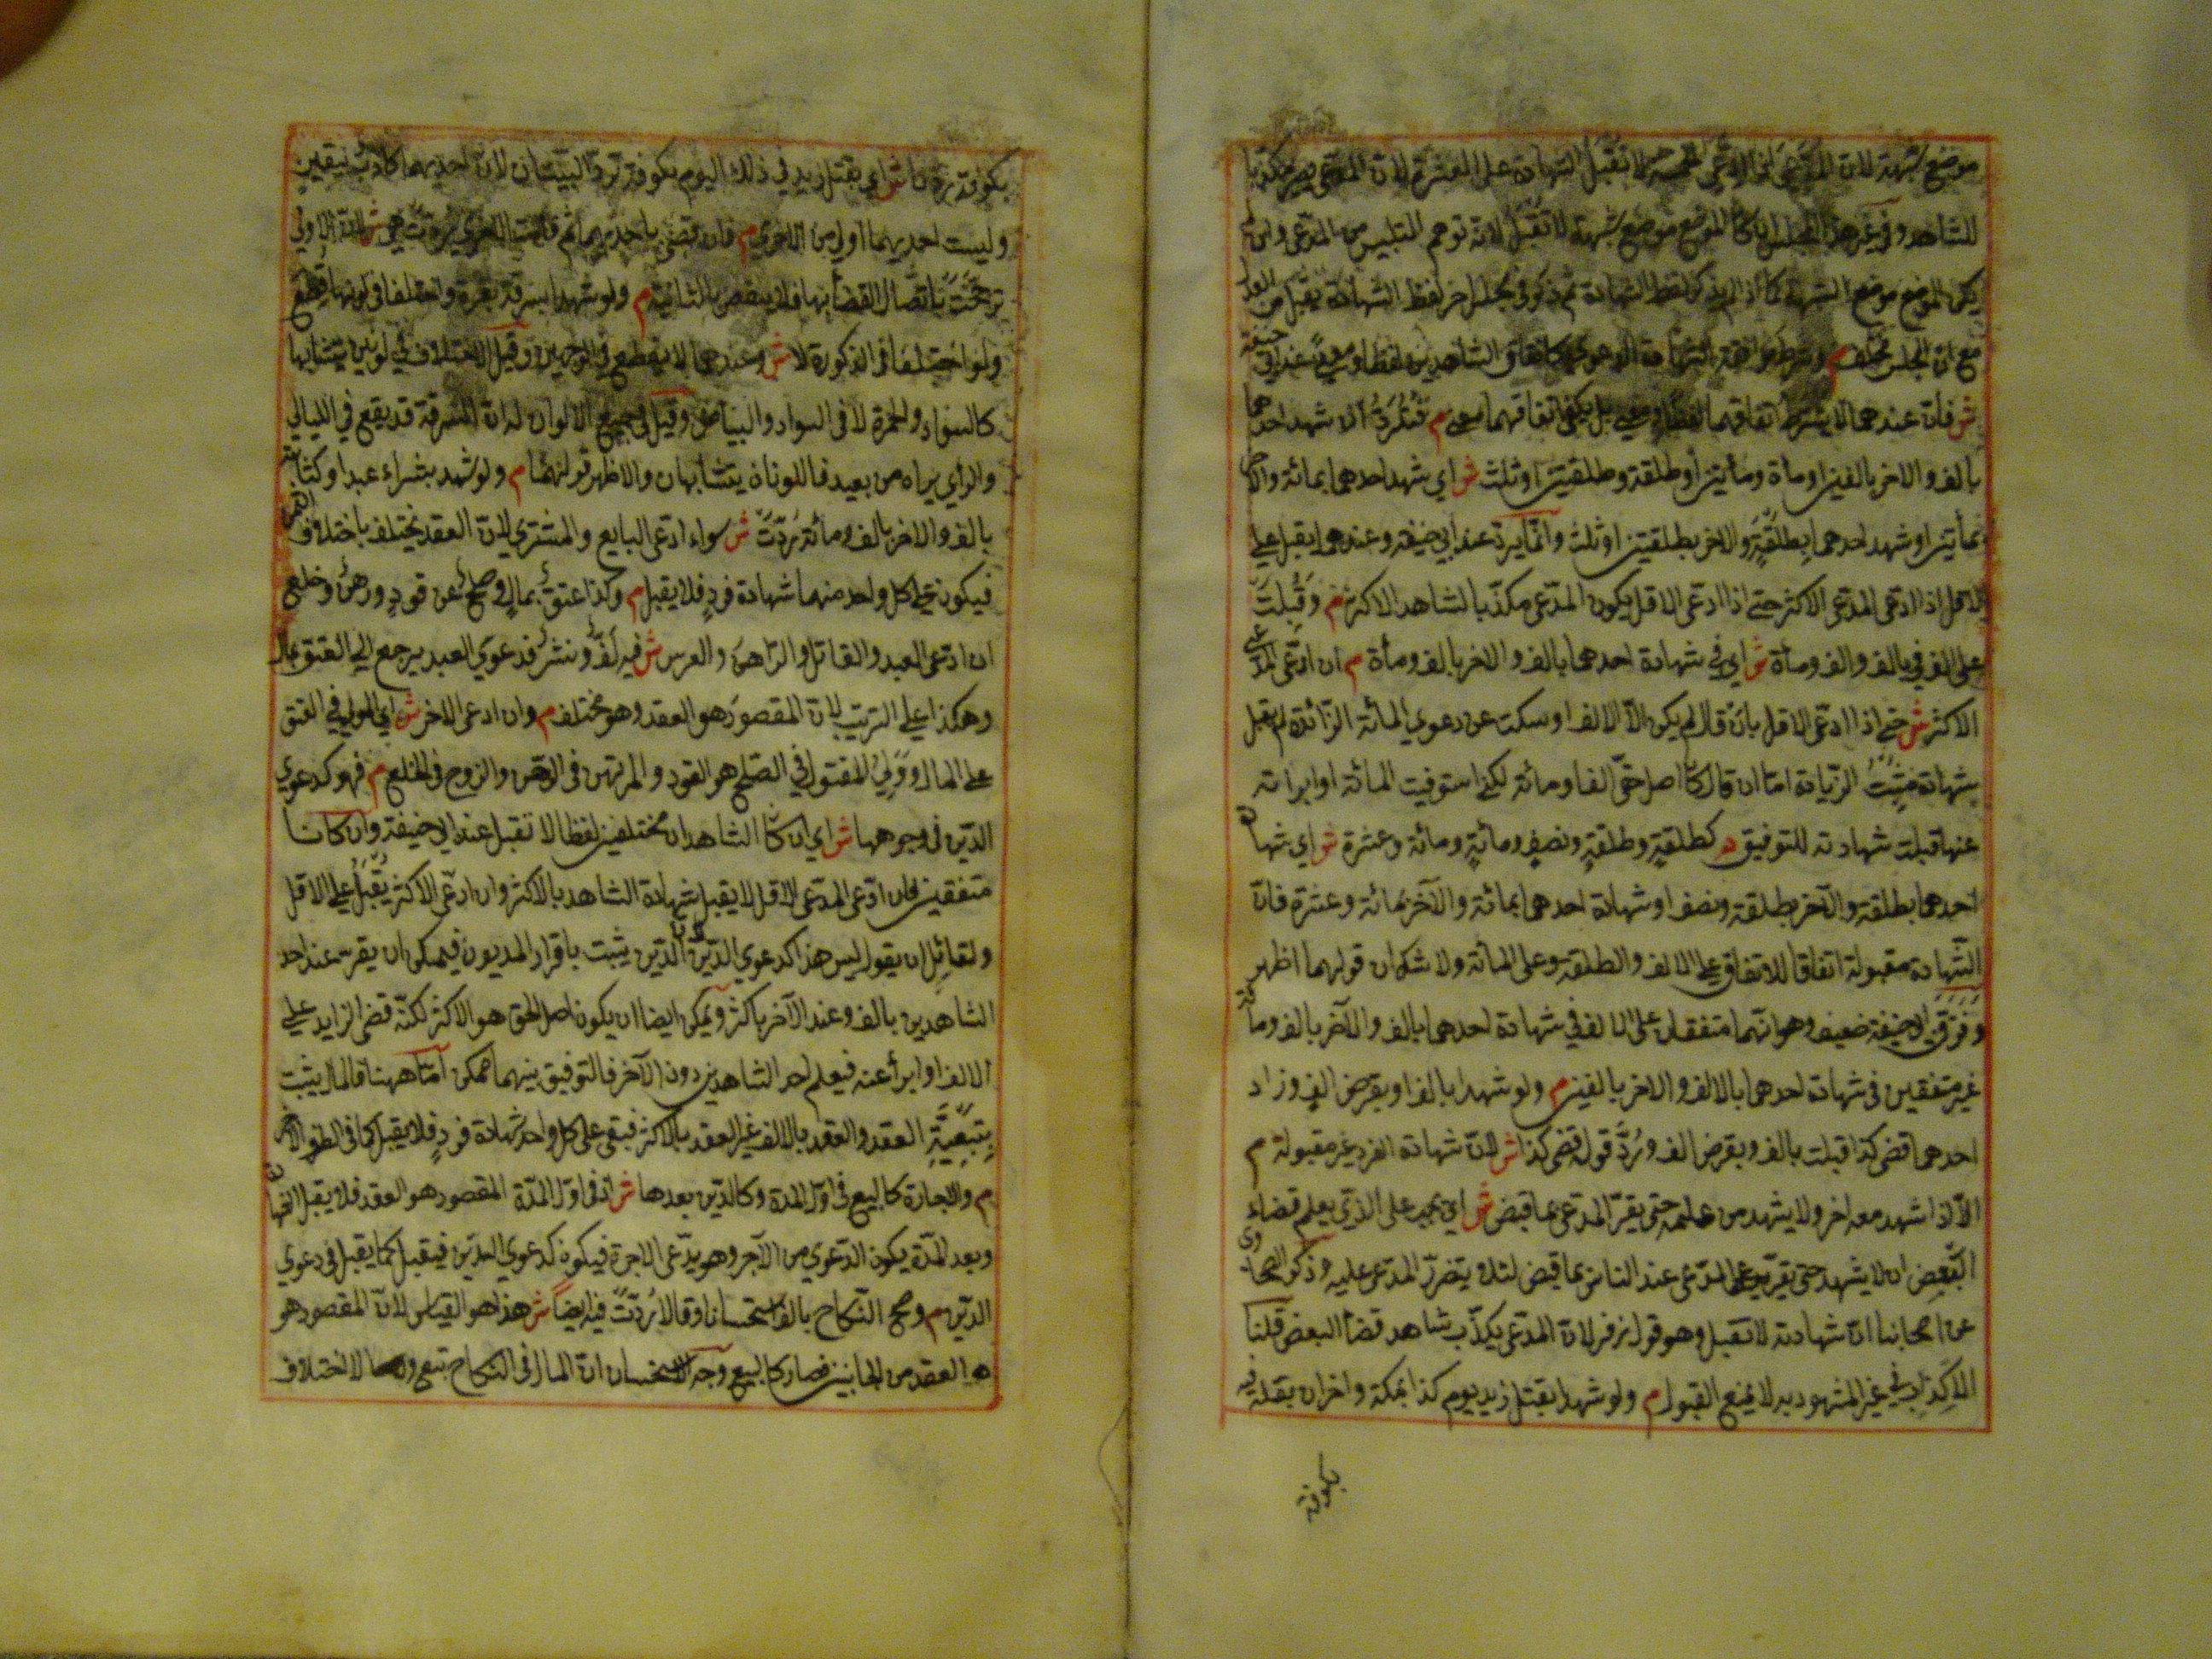 موضع شبهة لان المدعى اذا ادعى الخمسة لا تقبل الشهادة على العشرة لان المدعى يصير مكذبا
للشاهد وفي غير هذا المجلس ان كان الموضع موضع شبهة لا تقبل لانه توهم التلبيس من المدعى وان لم
يكن الموضع موضع الشبهة كما اذا لم يذكر لفظ الشهادة ثم ذكر في مجلس اخر لفظ الشهادة يقبل من العدل
مع ان المجلس مختلف م وشرط موافقة الشهادة الدعوى كاتفاق الشاهدين لفظا ومعنى عند ابي حنيفة
ش فان عندهما لا يشترط اتفاقهما لفظا ومعنى بل يكفي اتفاقهما معنى م فترد ان شهد احدهما
بالف والاخر بالفين او مأة ومأتين او طلقة وطلقتين او ثلث ش اي شهد احدهما بمائة والاخر
بمأتين او شهد احدهما بطلقة والاخر بطلقتين او ثلث وانما يرد عند ابي حنيفة وعندهما يقبل على
الاقل اذا ادعى المدعى الاكثر حتى اذا ادعى الاقل يكون المدعى مكذبا لشاهد الاكثر م وقبلت
على الف في بالف والف ومأة ش اي في شهادة احدهما بالف والاخر بالف ومأة م ان ادعى المدعى
الاكثر ش حتى اذا ادعى الاقل بان قال لم يكن الا الالف او سكت عن دعوى المائة الزائدة لم تقبل
شهادة مثبت الزيادة اما ان قال كان اصل حقى الفا ومائة لكنى استوفيت المائة او ابرأته
عنها قبلت شهادته للتوفيق م كطلقة وطلقة ونصف ومائة ومائة وعشرة ش اي شهادة
احدهما بطلقة والآخر بطلقة ونصف او شهادة احدهما بمائة والآخر بمائة وعشرة فان
الشهادة مقبولة اتفاقا للاتفاق على الالف والطلقة وعلى المائة ولا شك ان قولهما اظهر
وفرق ابي حنيفة ضعيف وهو انهما متفقان على الالف في شهادة احدهما بالف والآخر بالف ومائة
غير متفقين في شهادة احدهما بالالف والاخر بالفين م ولو شهدا بالف او بقرض الف وزاد
احدهما قضى كذا قبلت بالف وبقرض الف ورد قوله قضى كذا ش لان شهادة الفرد غير مقبولة م
الا اذا شهد معه اخر ولا يشهد من علمه حتى يقر المدعى بما قبض ش اي يجب على الذي يعلم قضاء
البعض ان لا يشهد حتى يقر المدعى عند الناس بما قبض لئلا يتضرر المدعى عليه وذكر الطحاوي
عن اصحابنا ان شهادته لا تقبل وهو قول زفر لان المدعى يكذب شاهد قضاء البعض قلنا
الاكذاب في غير المشهود به لا يمنع القبول م ولو شهدا بقتل زيد يوم كذا بمكة واخران بقتله فيه
بكوفة
بكوفة ردتا ش اي بقتل زيد في ذلك اليوم بكوفة ترد البينتان لان احديهما كاذبة بيقين
وليست احديهما اولى من الاخرى م فان قضى باحديهما ثم قامت الاخرى ردت هي ش لان الاولى
ترجحت باتصال القضاء بها فلا ينقض بالثانية م ولو شهدا بسرقة بقرة واختلفا في لونها قطع
ولو اختلفا في الذكورة لا ش وعندهما لا يقطع في الوجهين وقيل الاختلاف في لونين يتشابها
كالسواد والحمرة لا في السواد والبياض وقيل في جميع الالوان له ان السرقة قد يقع في الليالي
والرأي يراه من بعيد فاللونان يتشابهان والاظهر قولهما م ولو شهد بشراء عبد او كتابته
بالف والاخر بالف ومائة ردت ش سواء ادعى البايع والمشتري لان العقد يختلف باختلاف الثمن
فيكون على كل واحد منهما شهادة فرد فلا يقبل م وكذا عتق بمال وصلح عن قود ورهن وخلع
ان ادعى العبد والقاتل والراهن والعرس ش فيه لف ونشر فدعوى العبد يرجع الى العتق بمال
وهكذا على الترتيب لان المقصود هو العقد وهو مختلف م وان ادعى الاخر ش اي المولى في العتق
على المال وولي المقتول في الصلح هو القود والمرتهن في الرهن والزوج في الخلع م فهو كدعوى
الدين في وجوهها ش اي ان كان الشاهدان مختلفين لفظا لا تقبل عند ابي حنيفة وان كانا
متفقين فان ادعى المدعى الاقل لا يقبل شهادة الشاهد بالاكثر وان ادعى الاكثر يقبل على الاقل
ولقائل ان يقول ليس هذا كدعوى الدين لان الدين يثبت باقرار المديون فيمكن ان يقرت عند احد
الشاهدين بالف وعند الآخر باكثر ويمكن ايضا ان يكون اصل الحق هو الاكثر لكنه قضى الزايد على
الالف او ابرأ عنه فيعلم احد الشاهدين دون الآخر فالتوفيق بينهما ممكن اما ههنا فالمال يثبت
بتبعية العقد والعقد بالالف غير العقد بالاكثر فبقي على كل واحد شهادة فرد فلا يقبل كما في الطرف الآخر
م والاجارة كالبيع في اول المدة وكالدين بعدها ش اذ في اول المدة المقصود هو العقد فلا يقبل الشهادة
وبعد المدة يكون الدعوى من الآجر وهو يدعى الاجرة فيكون كدعوى الدين فيقبل كما يقبل في دعوى
الدين م وصح النكاح بالف استحسانا وقالا ردت فيه ايضا ش هذا هو القياس لان المقصود هو
العقد من الجانبين فصار كالبيع وجه الاستحسان ان المال في النكاح تبع ولا اختلاف